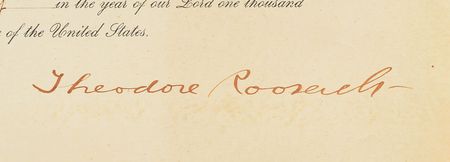 in the year of our Lord one thousand
of the United States.
Theodore Roosevelt